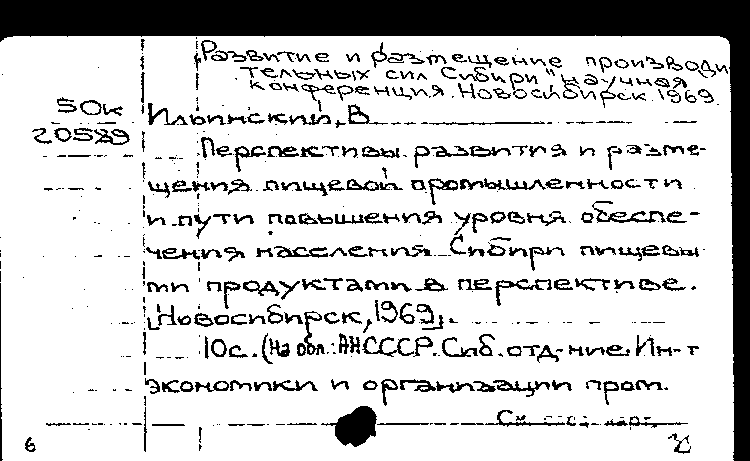 „Развитие и размещение производи-
тельных сил Сибири" научная
конференция. Новосибирск 1969.
50к
20589
Ильинский, В.
Перспективы развития и разме-
щения пищевой промышленности
и пути повышения уровня обеспе-
чения населения Сибири пищевы
ми продуктами в перспективе.
[Новосибирск, 1969].
10с. (На обл.: АН СССР. Сиб. отд-ние. Ин-т
экономики и организации пром.
См. карт.
6